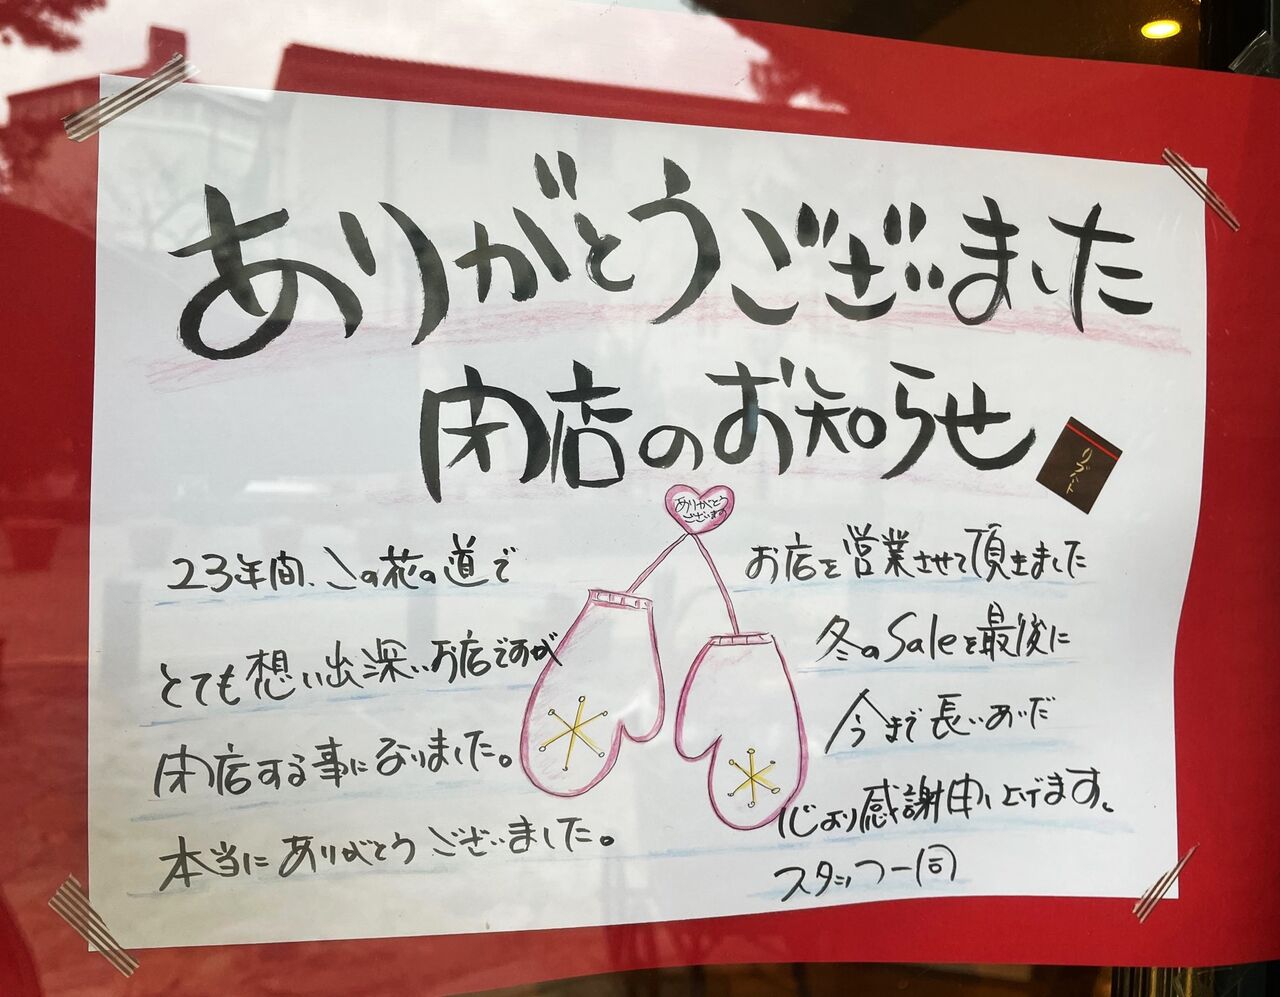 ありがとうございました
閉店のお知らせ
リズム
ありがとう
ございます
23年間、この花の道で
とても想い出深いお店ですが
閉店する事になりました。
本当にありがとうございました。
お店を営業させて頂きました
冬のSaleを最後に
今まで長いあいだ
心より感謝申し上げます。
スタッフ一同